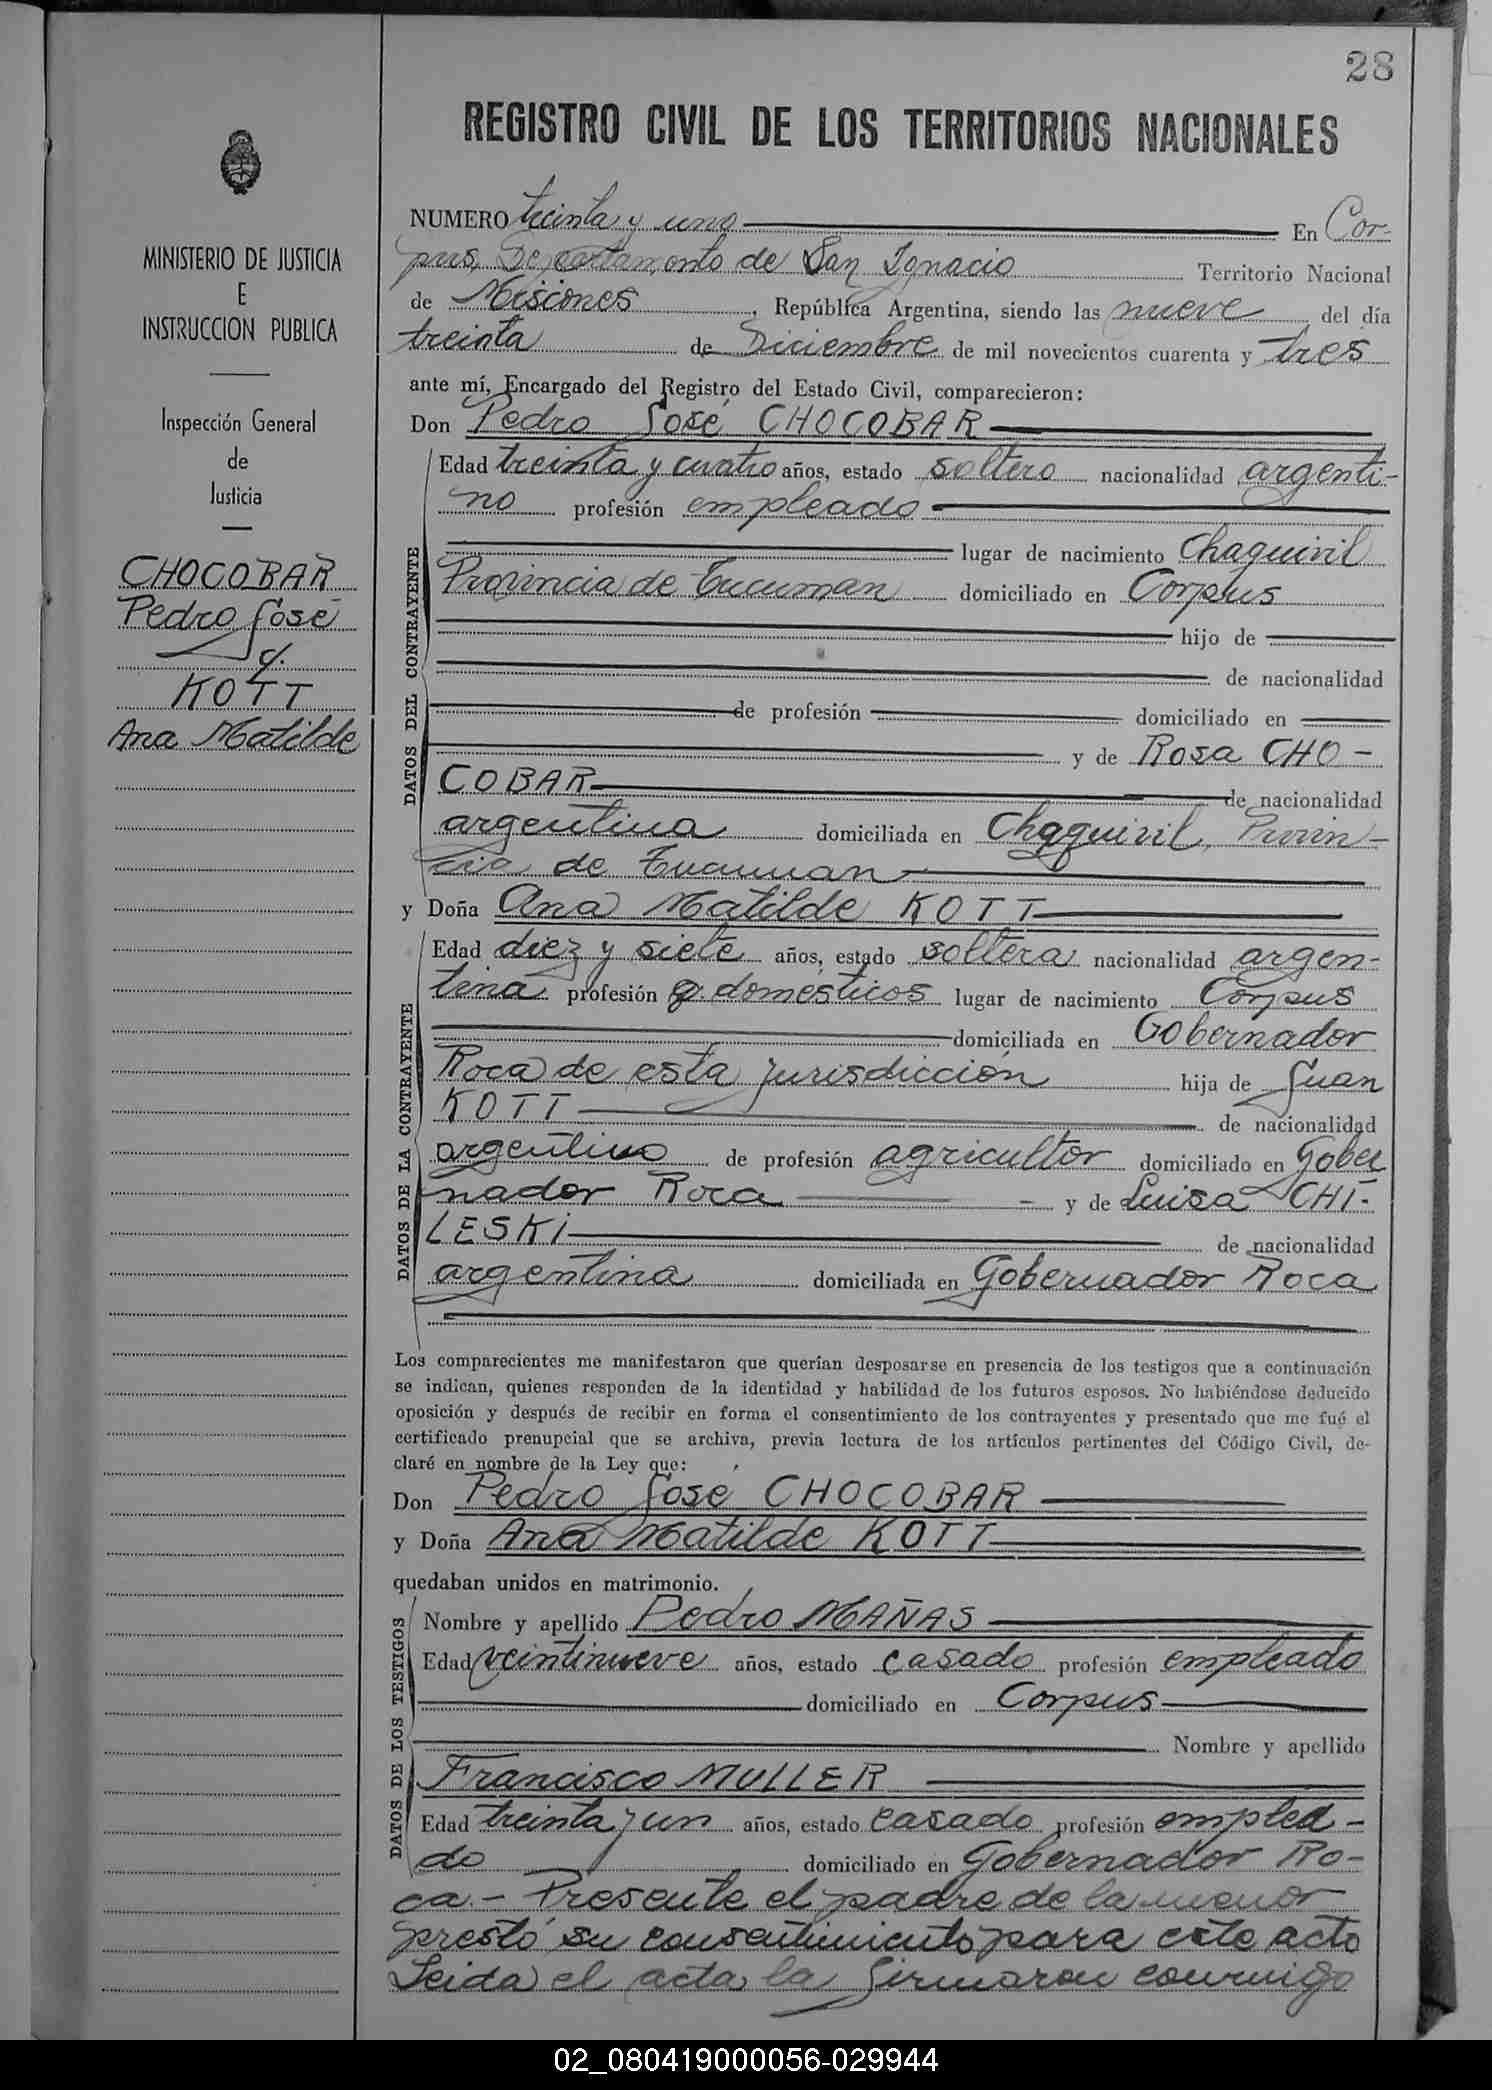 28
REGISTRO CIVIL DE LOS TERRITORIOS NACIONALES
MINISTERIO DE JUSTICIA
E
INSTRUCCION PUBLICA
Inspección General
de
Justicia
CHOCOBAR
Pedro José
c/.
KOTT
Ana Matilde
NUMERO treinta y uno En Cor-
pus, Departamento de San Ignacio Territorio Nacional
de Misiones, República Argentina, siendo las nueve del día
treinta de Diciembre de mil novecientos cuarenta y tres
ante mí, Encargado del Registro del Estado Civil, comparecieron:
Don Pedro José CHOCOBAR
DATOS DEL CONTRAYENTE
Edad treinta y cuatro años, estado soltero nacionalidad argenti-
no profesión empleado
lugar de nacimiento Chaquivil
Provincia de Tucuman domiciliado en Corpus
hijo de
de nacionalidad
de profesión domiciliado en
y de Rosa CHO-
COBAR de nacionalidad
argentina domiciliada en Chaquivil, Provin-
cia de Tucuman
y Doña Ana Matilde KOTT
DATOS DE LA CONTRAYENTE
Edad diez y siete años, estado soltera nacionalidad argen-
tina profesión q. domésticos lugar de nacimiento Corpus
domiciliada en Gobernador
Roca de esta jurisdicción hija de Juan
KOTT de nacionalidad
argentino de profesión agricultor domiciliado en Gober
nador Roca y de Luisa CHI-
LESKI de nacionalidad
argentina domiciliada en Gobernador Roca
Los comparecientes me manifestaron que querían desposarse en presencia de los testigos que a continuación
se indican, quienes responden de la identidad y habilidad de los futuros esposos. No habiéndose deducido
oposición y después de recibir en forma el consentimiento de los contrayentes y presentado que me fué el
certificado prenupcial que se archiva, previa lectura de los artículos pertinentes del Código Civil, de-
claré en nombre de la Ley que:
Don Pedro José CHOCOBAR
y Doña Ana Matilde KOTT
quedaban unidos en matrimonio.
DATOS DE LOS TESTIGOS
Nombre y apellido Pedro MAÑAS
Edad veintinueve años, estado casado profesión empleado
domiciliado en Corpus
Nombre y apellido
Francisco MULLER
Edad treinta y un años, estado casado profesión emplea-
do domiciliado en Gobernador Ro-
ca.- Presente el padre de la menor
prestó su consentimiento para este acto
Leida el acta la firmaron conmigo
02_080419000056-029944